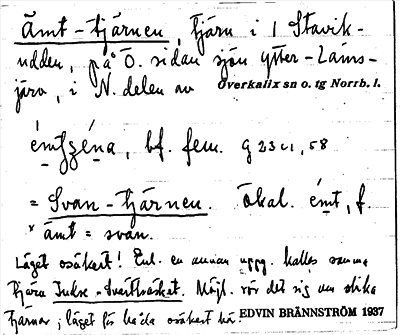 Ämt-tjärnen, tjärn i 1 Stavik-
udden, på Ö. sidan sjön Ytter-Läns-
järv, i N. delen av Överkalix sn o. tg Norrb. l.
bf. fem.
= Svan-tjärnen. Ökal. émt, f.
* ämt = svan.
Läget osäkert! Enl. en annan uppg. kallas samma
tjärn Möjl. rör det sig om olika
tjärnar; läget för båda osäkert här. EDVIN BRÄNNSTRÖM 1937